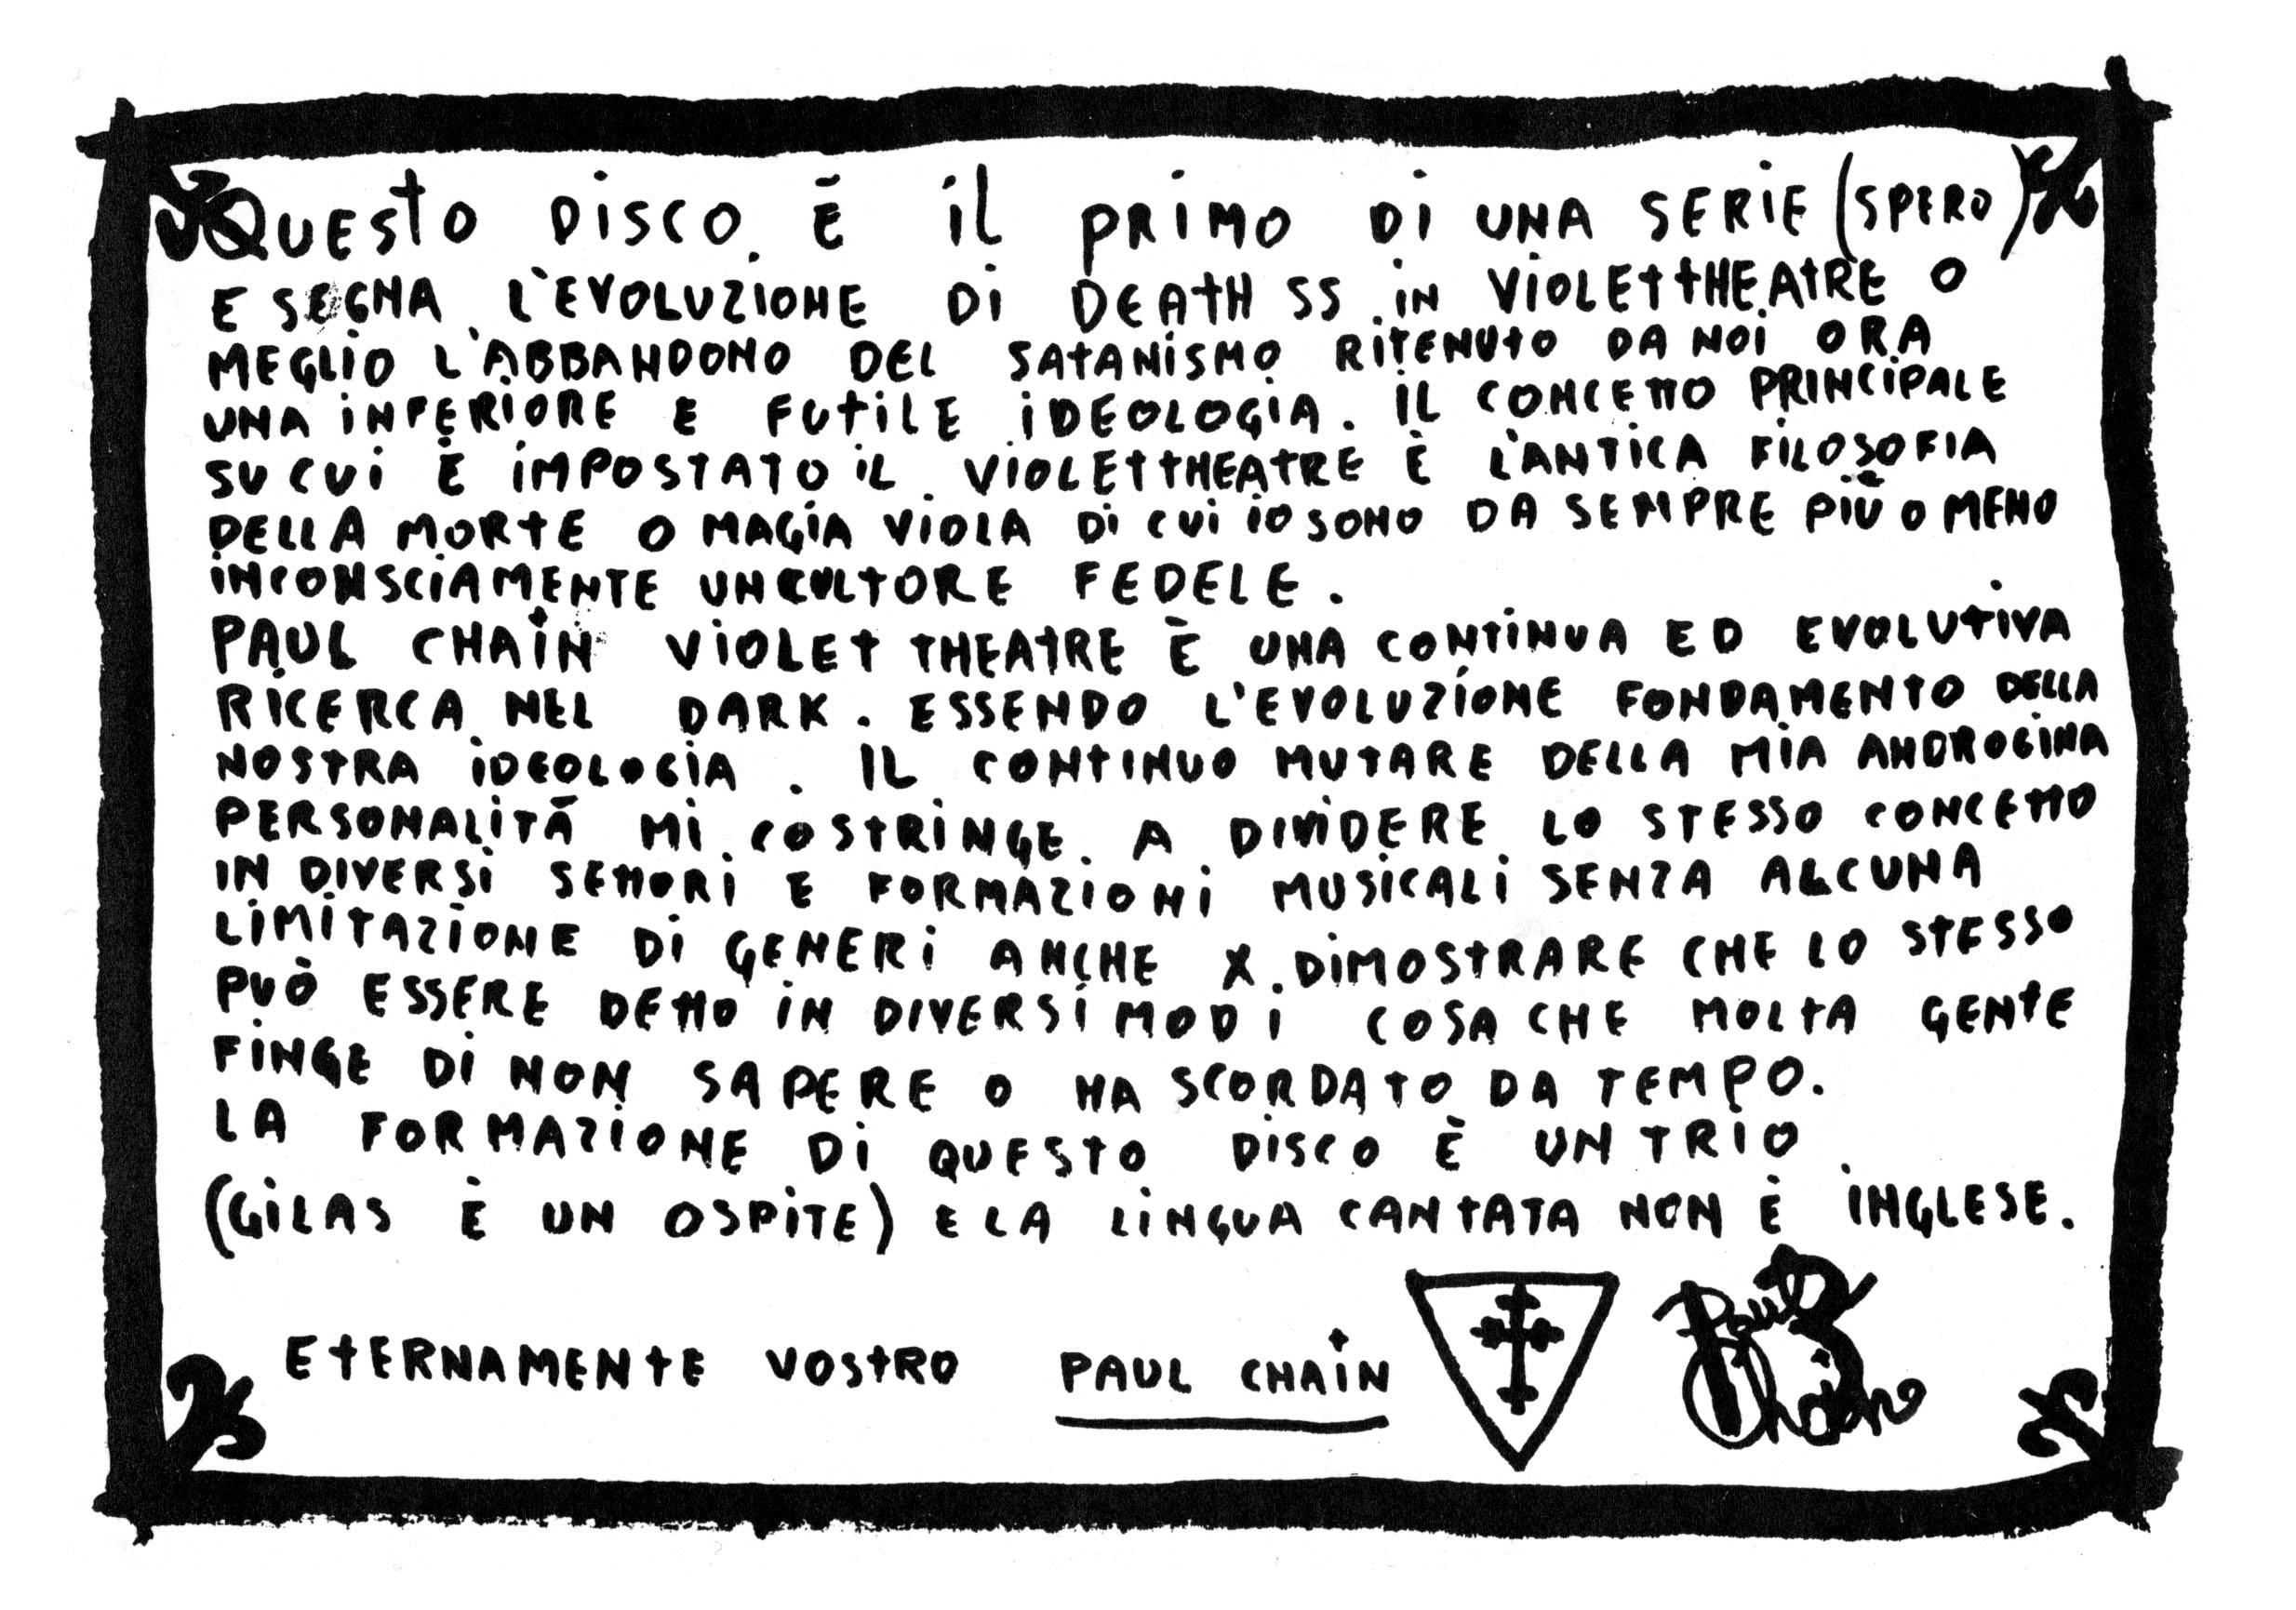 QUESTO DISCO È IL PRIMO DI UNA SERIE (SPERO)
E SEGNA L'EVOLUZIONE DI DEATH SS IN VIOLET THEATRE O
MEGLIO L'ABBANDONO DEL SATANISMO RITENUTO DA NOI ORA
UNA INFERIORE E FUTILE IDEOLOGIA. IL CONCETTO PRINCIPALE
SU CUI È IMPOSTATO IL VIOLET THEATRE È L'ANTICA FILOSOFIA
DELLA MORTE O MAGIA VIOLA DI CUI IO SONO DA SEMPRE PIÙ O MENO
INCONSCIAMENTE UN CULTORE FEDELE.
PAUL CHAIN VIOLET THEATRE È UNA CONTINUA ED EVOLUTIVA
RICERCA NEL DARK. ESSENDO L'EVOLUZIONE FONDAMENTO DELLA
NOSTRA IDEOLOGIA. IL CONTINUO MUTARE DELLA MIA ANDROGINA
PERSONALITÀ MI COSTRINGE A DIVIDERE LO STESSO CONCETTO
IN DIVERSI SETTORI E FORMAZIONI MUSICALI SENZA ALCUNA
LIMITAZIONE DI GENERI ANCHE X DIMOSTRARE CHE LO STESSO
PUÒ ESSERE DETTO IN DIVERSI MODI COSA CHE MOLTA GENTE
FINGE DI NON SAPERE O HA SCORDATO DA TEMPO.
LA FORMAZIONE DI QUESTO DISCO È UN TRIO
(GILAS È UN OSPITE) E LA LINGUA CANTATA NON È INGLESE.
ETERNAMENTE VOSTRO PAUL CHAIN Paul Chain